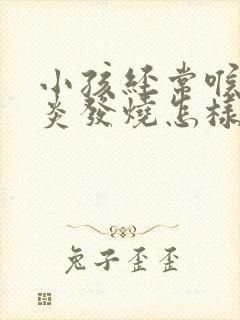 小孩經常喉
炎發燒怎樣
兔子歪歪